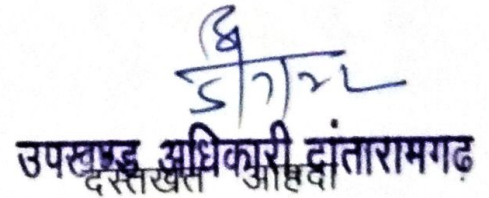 उपखण्ड अधिकारी दांतारामगढ़
दस्तखत ओहदा